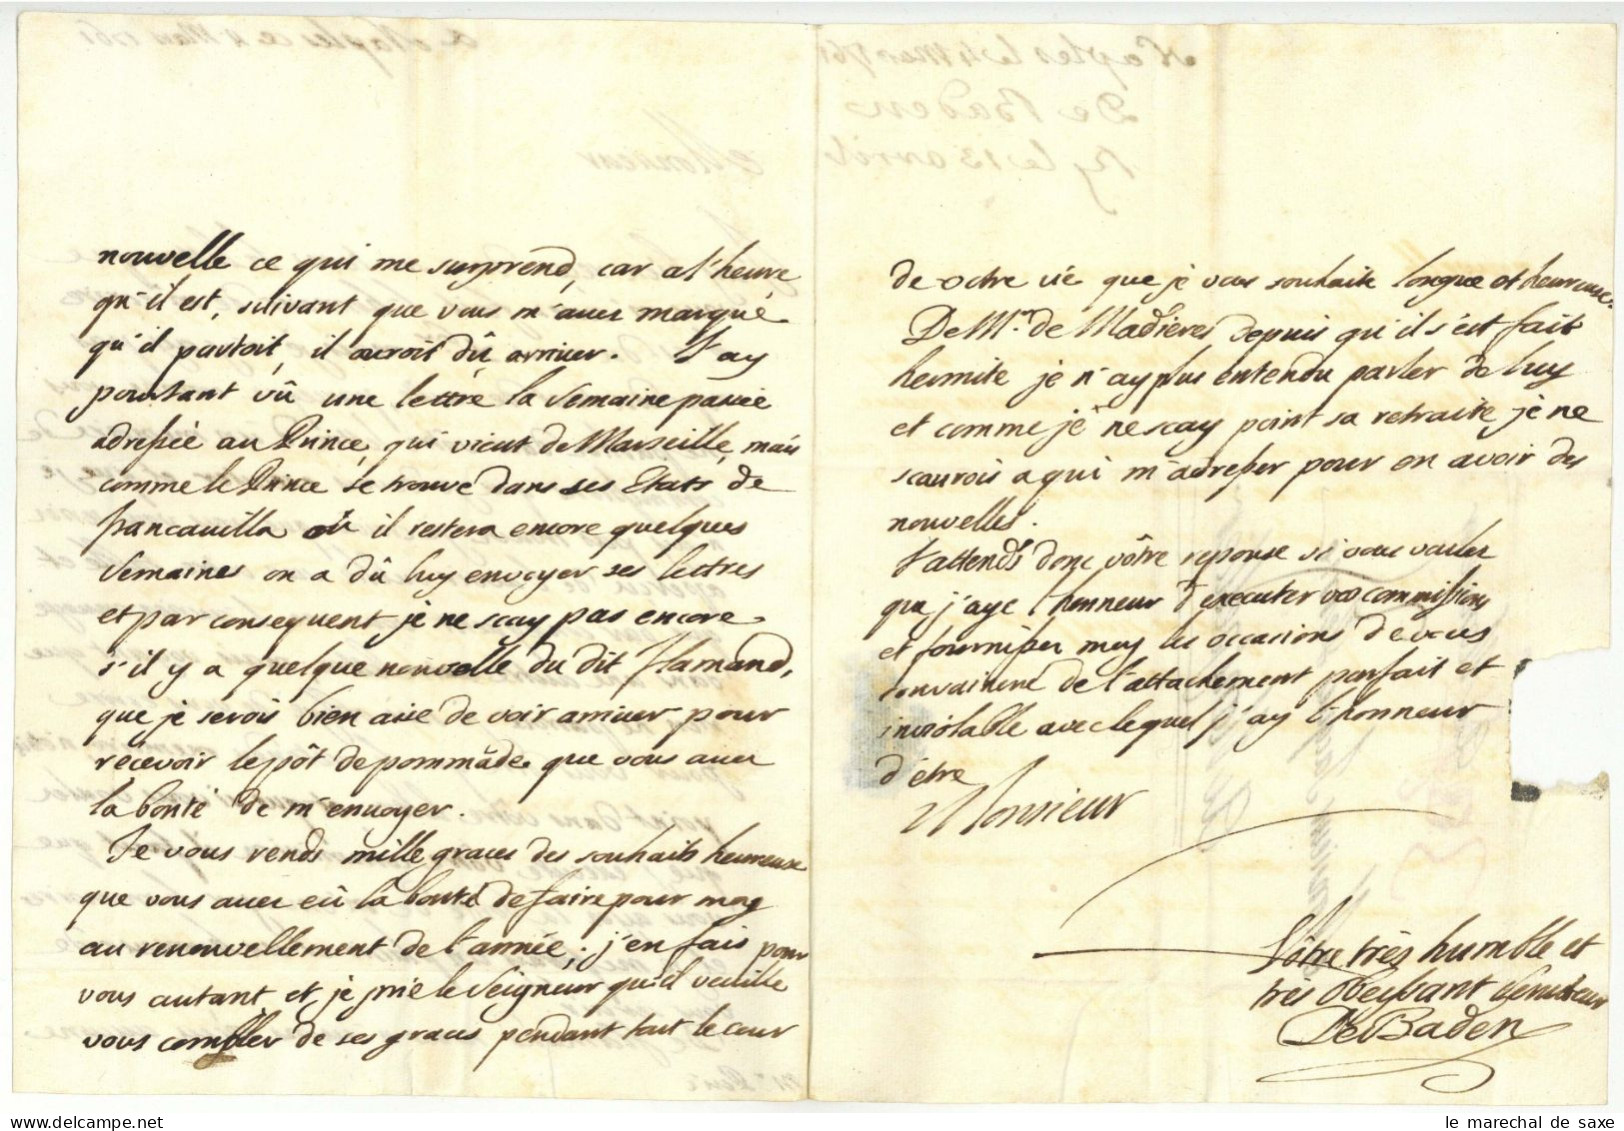 nouvelle ce qui me surprend, car a l'heure
qu'il est, suivant que vous m'aves marqué
qu'il partoit, il auroit dû arriver. J'ay
pourtant vû une lettre la Semaine passée
adressée au Prince, qui vient de Marseille, mais
comme le Prince se trouve dans ses Etats de
francavilla où il restera encore quelques
Semaines on a dû luy envoyer ses lettres
et par consequent je ne scay pas encore
s'il y a quelque nouvelle du dit flamand,
que je serois bien aise de voir arriver pour
recevoir le pôt de pommâde que vous aves
la bonté de m'envoyer.
Je vous rends mille graces des souhaits heureuse
que vous aves eû la bonté de faire pour moy
au renouvellement de l'année; j'en fais pour
vous autant et je prie le Seigneur qu'il veuille
vous combler de ses graces pendant tout le cour
de votre vie que je vous souhaite longue et heureuse.
De Mr. de Madieres, depuis qu'il s'est fait
hermite je n'ay plus entendu parler de luy
et comme je ne scay point sa retraite, je ne
scaurois a qui m'adresser pour en avoir des
nouvelles.
J'attends donc vôtre reponse si vous voules
que j'aye l'honneur d'executer vos commissions
et fournisses moy les occasions de vous
convaincre de l'attachement parfait et
inviolable avec lequel j'ay l'honneur
d'être
Monsieur
Vôtre très humble et
très obeissant serviteur
De Baden
le marechal de saxe